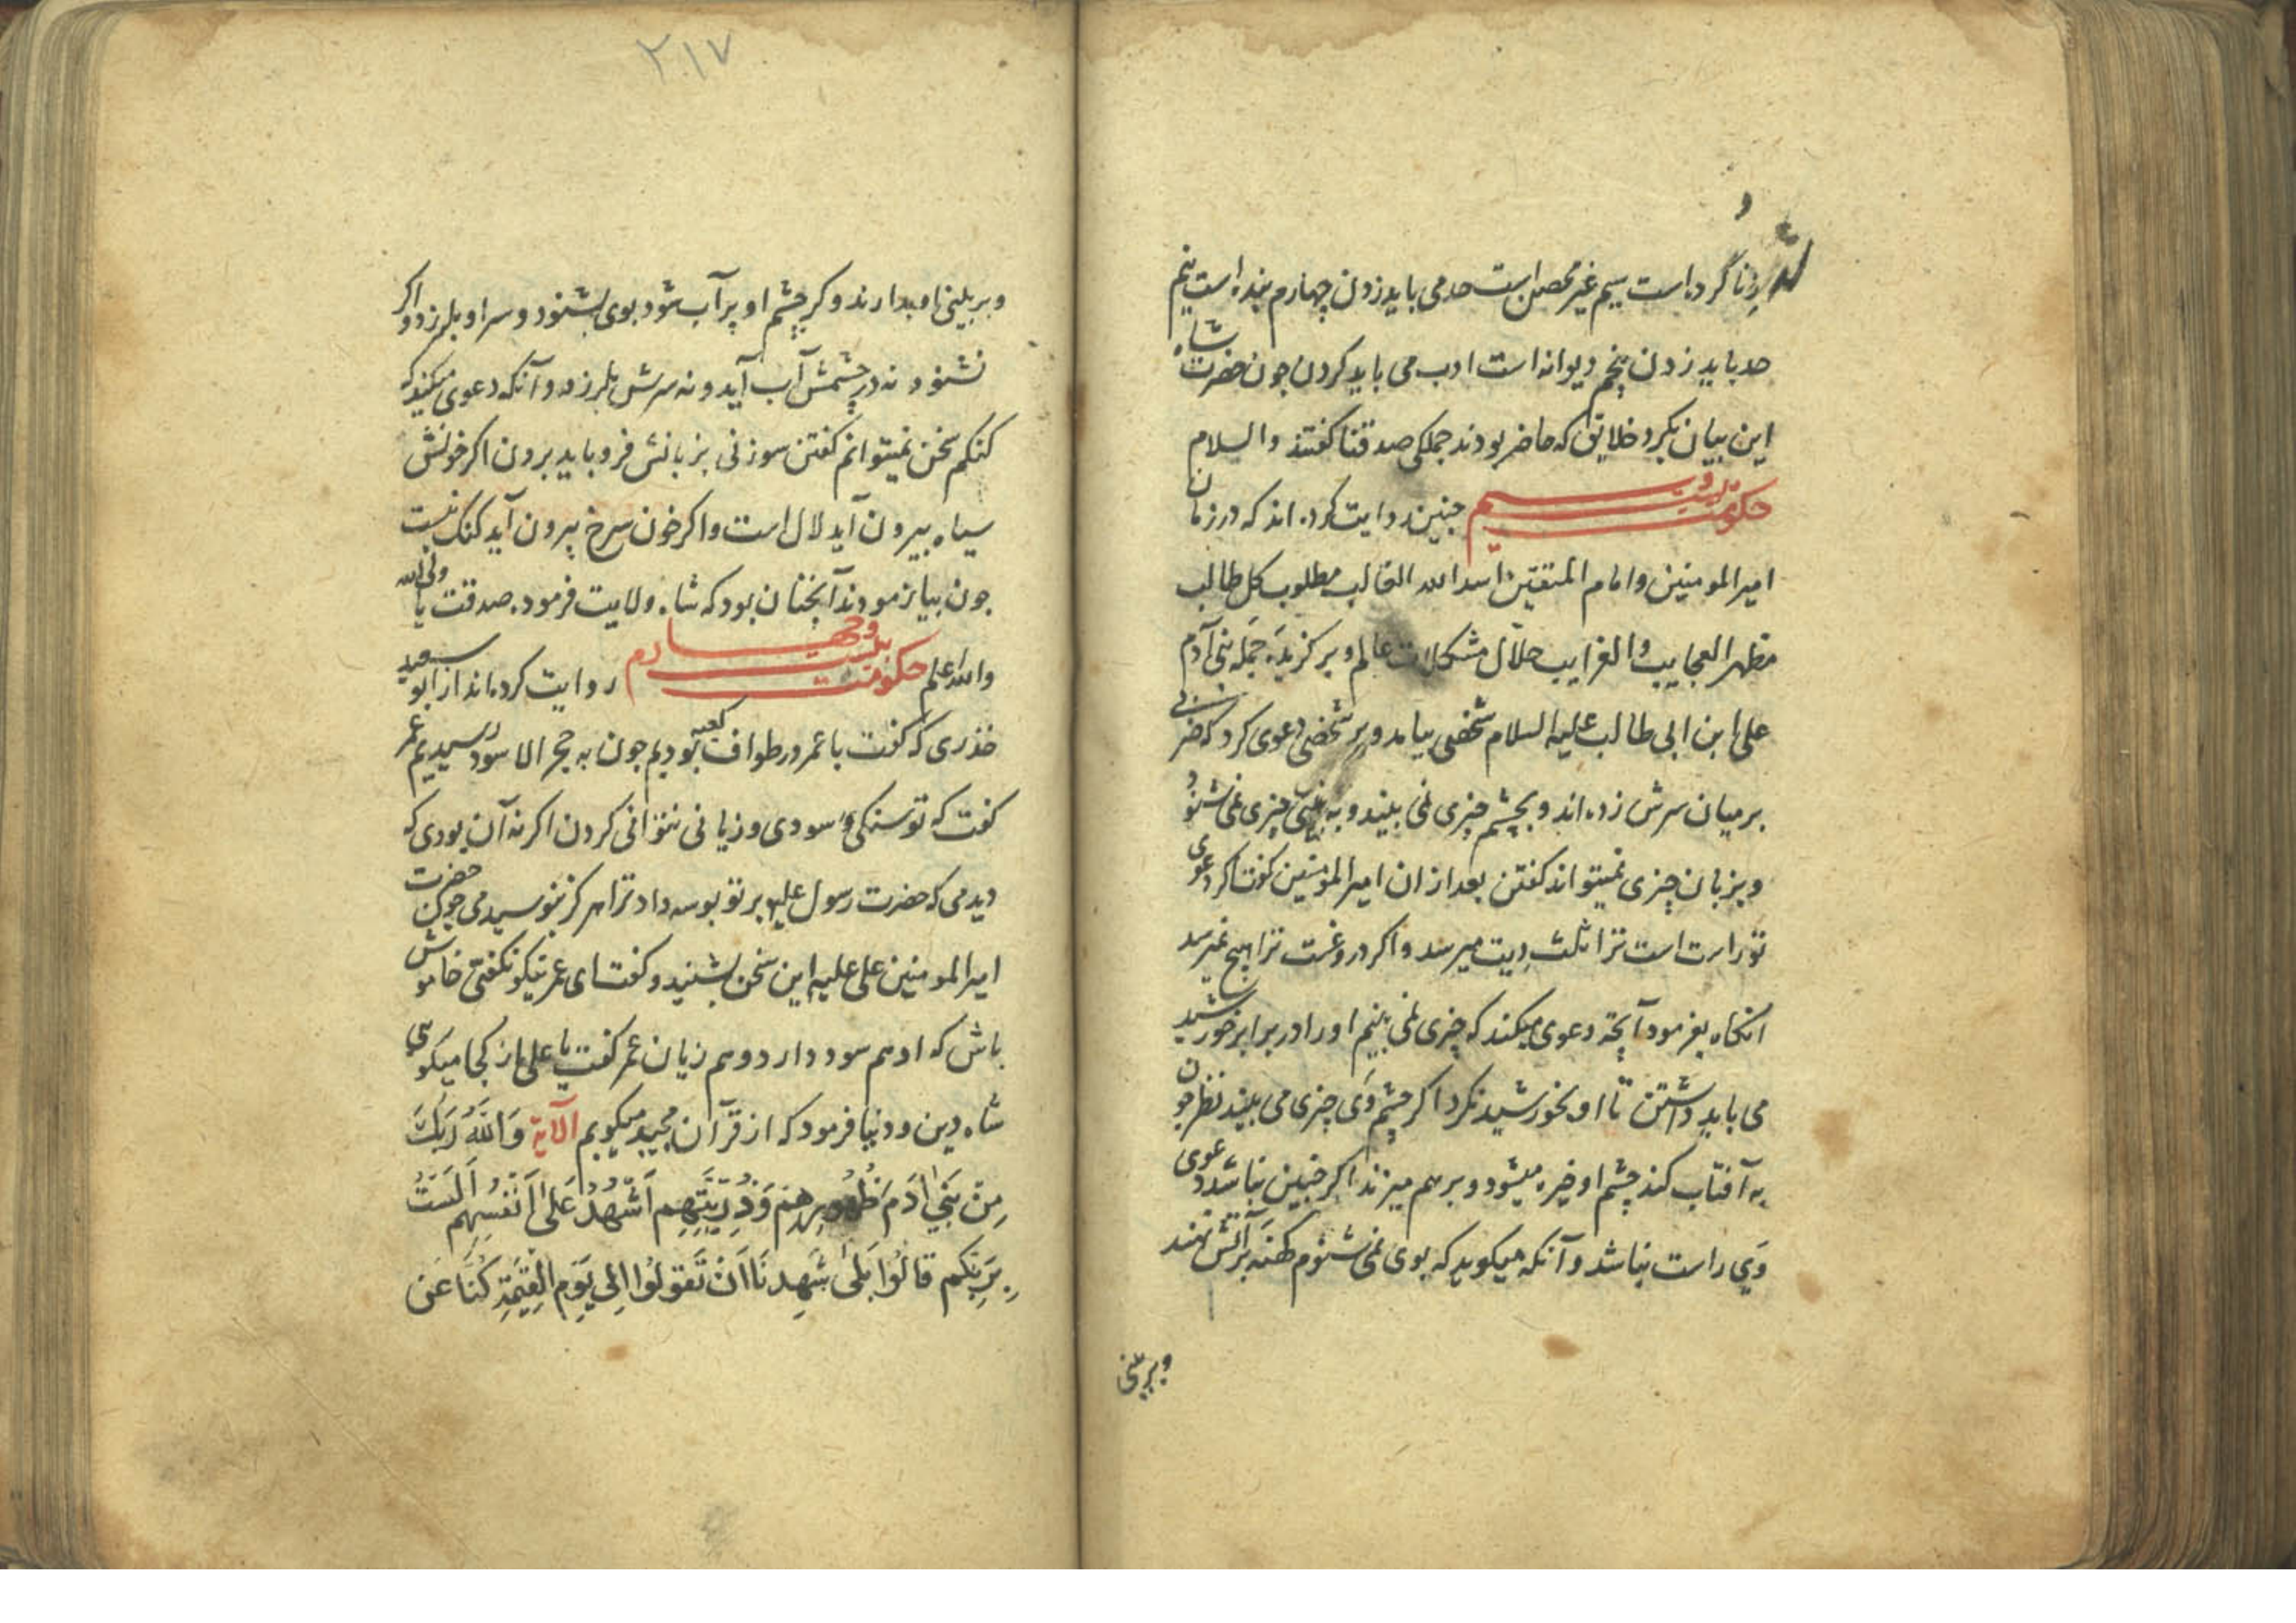 زنا کرده است سیم غیر محصن است حد می باید زدن چهارم بنده است نیم
حد باید زدن پنجم دیوانه است ادب می باید کردن جون حضرت شاه
این بیان بکرد خلایق که حاضر بودند جملکی صدقنا کفتند والسلام
حکومت بیست و سیم جنین روایت کرده اند که در زمان
امیر المومنین و امام المتقین اسد الله الغالب مطلوب کل طالب
مظهر العجایب و الغرایب حلّال مشکلات عالم و برکزیدَه جمله بنی آدم
علی ابن ابی طالب علیه السلام شخصی بیامد و بر شخصی دعوی کرد که ضربی
بر میان سرش زده اند و بچشم چیزی نمی بیند و به بینی چیزی نمی شنود
و بزبان چیزی نمیتواند کفتن بعد از ان امیر المؤمنین کفت اکر دعوی
تو راست است ترا ثلث دیت میرسد و اکر دروغست ترا هیچ نمیرسد
انکاه بفرمود آنچه دعوی میکند که چیزی نمی بینم او را در برابر خورشید
می باید داشتن تا او بخورشید نکرد اکر چشم وَی چیزی می بیند نظر جون
به آفتاب کند چشم او خیره میشود و بر هم میزند اکر جنین نباشد دعوی
وَی راست نباشد و آنکه میکوید که بوی نمی شنوم کهنه بر آتش نهند
و بر بینی
٢١٧
و بر بینی او بدارند و کر چشم او پر آب شود بوی بشنود و سر او بلرزد و اکر
نشنود نه در چشمش آب آید و نه سرش بلرزد و آنکه دعوی میکند که
کنکم سخن نمیتوانم کفتن سوزنی بزبانش فرو باید بردن اکر خونش
سیاه بیرون آید لال است و اکر خون سرخ بیرون آید کنک نیست
جون بیازمودند آنجنان بود که شاه ولایت فرمود صدقت یا ولی الله
والله اعلم حکومت بیست و جهارم روایت کرده اند از ابو سعید
خذری که کفت با عمر در طواف کعبه بودیم جون به حجر الاسود رسیدیم عمر
کفت که تو سنکی و سودی و زیانی نتوانی کردن اکر نه آن بودی که
دیدمی که حضرت رسول علیه بر تو بوسه داد ترا هرکز نبوسیدمی جون حضرت
امیر المومنین علی علیه این سخن بشنید و کفت ای عمر نیکو نکفتی خاموش
باش که او هم سود دارد و هم زیان عمر کفت یا علی از کجا میکوی
شاه دین و دنیا فرمود که از قرآن مجید میکویم الآیة وَاللَّهُ رَبُّكَ
مِن بَنِي آدَمَ ظُهُورِهِم وَذُرِّيَّتِهِم اَشْهِدُ عَلَى اَنْفُسِهِم اَلَسْتُ
بِرَبِّكُم قَالُوا بَلَى شَهِدنَا اَن تَقُولُوا اِلى يَومِ القِيَمَةِ كُنَّا عَن